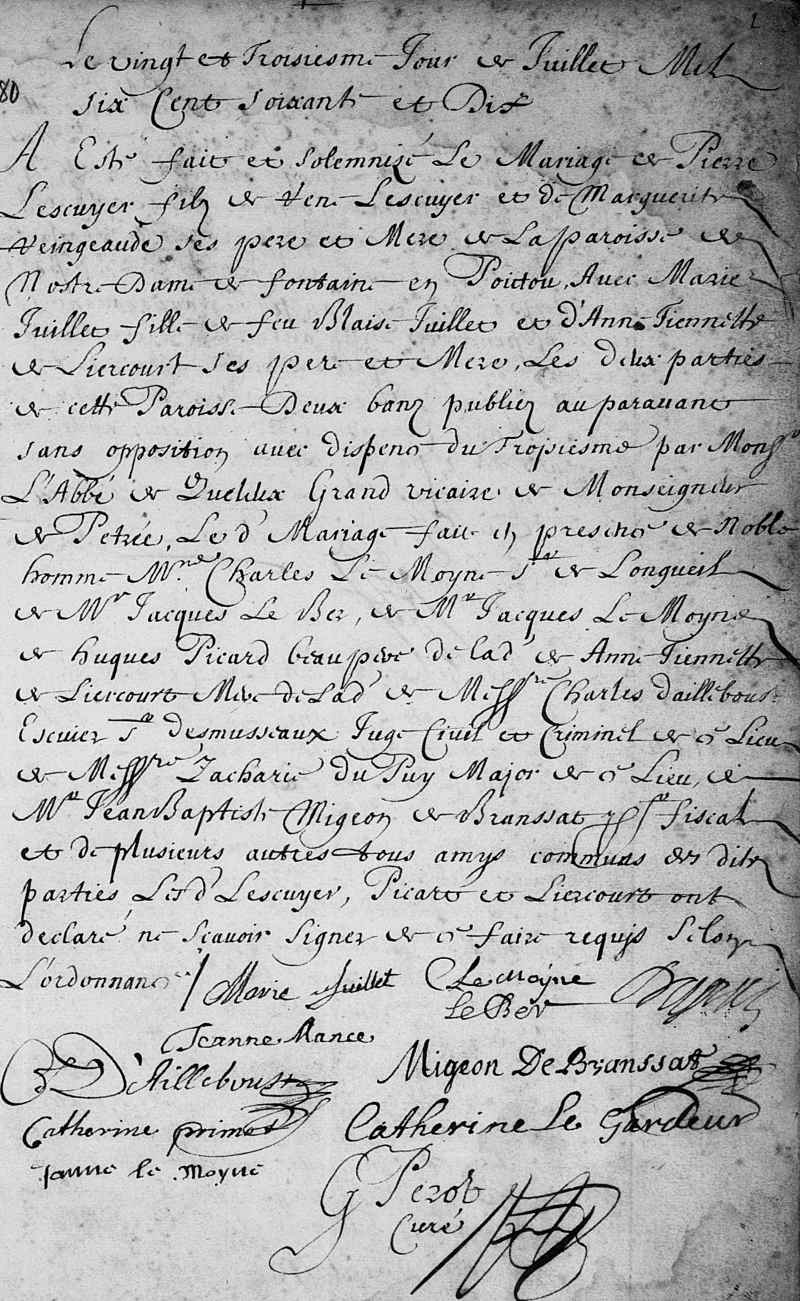 1
Le vingt et Troisiesme Jour de Juillet Mil
80
Six Cent Soixante et Dix
A Esté fait et solemnizé Le Mariage de Pierre
Lescuyer filz de René Lescuyer et de Marguerite
Reingeaude ses pere et Mere de La paroisse de
Nostre Dame de fontaine en Poictou, Avec Marie
Juillet fille de feu Blaise Juillet et d'Anne Tiennette
de Liercourt ses pere et Mere, Les deux parties
de cette Paroisse Deux banz publiez auparavant
sans opposition avec dispense du Troisiesme par Monsr
L'Abbé de Queilux Grand vicaire de Monseigneur
de Petrée, Le d' Mariage fait en presence de Noble
homme Mre Charles Le Moyne Sr de Longueil
de Mr Jacques Le Ber, de Mr Jacques Le Moyne
de hugues Picard beaupere de lad' de Anne Tiennette
de Liercourt Mere de Lad' de Messre Charles dailleboust
Escuier Sr desmusseaux Juge Civil et Criminel de ce Lieu
de Messre Zacharie du Puy Major de ce Lieu, de
Mr Jean Baptiste Migeon de Branssat fiscal
et de plusieurs autres tous amys communs des dites
parties Lesd' Lescuyer, Picart et Liercourt ont
declaré ne Scavoir Signer de ce faire requis Selon
L'ordonnance /
Marie Juillet C Le moyne
Le Ber Dupuis
Jeanne Mance
D'Ailleboust Migeon De Branssat
Catherine primot Catherine Le Gardeur
Janne le moyne
G Perot
Curé